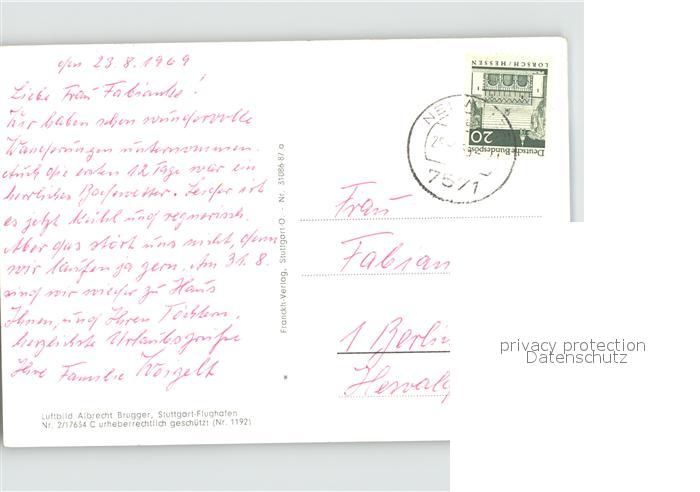 den 23.8.1969
Liebe Frau Fabianke!
Wir haben schon wundervolle
Wanderungen unternommen.
Auch die ersten 12 Tage war ein
herrliches Badewetter. Leider ist
es jetzt kühl und regnerisch.
Aber das stört uns nicht, denn
wir laufen ja gern. Am 31.8.
sind wir wieder zu Haus
Ihnen, und Ihren Töchtern,
herzlichste Urlaubsgrüße
Ihre Familie
Luftbild Albrecht Brugger, Stuttgart-Flughafen
Nr. 2/17654 C urheberrechtlich geschützt (Nr. 1192)
Franckh-Verlag, Stuttgart-O - Nr. 31086-87 a
LORSCH/HESSEN
20
Deutsche Bundespost
7571
Frau
Fabian
1 Berlin
privacy protection
Datenschutz